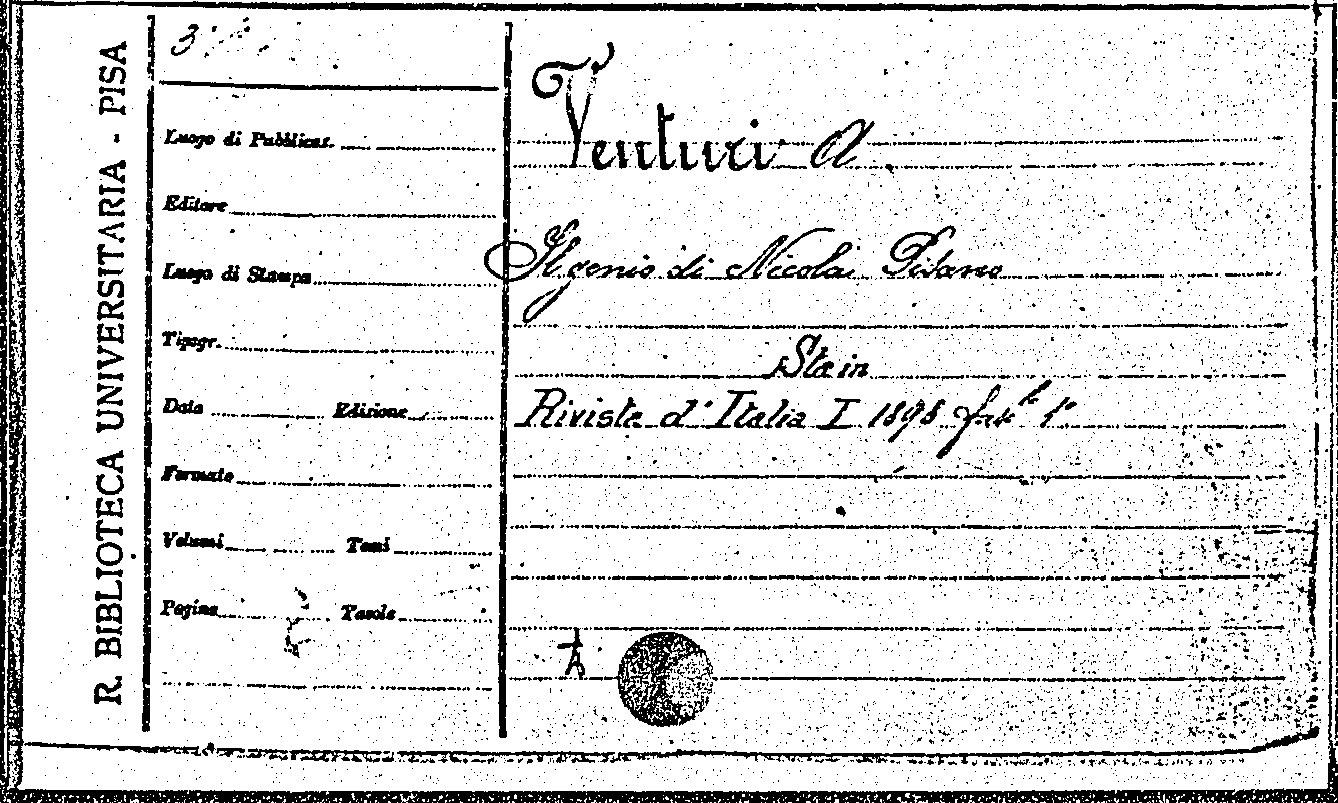 R. BIBLIOTECA UNIVERSITARIA - PISA
Luogo di Pubblicaz.
Editore
Luogo di Stampa
Tipogr.
Data Edizione
Formato
Volumi Tomi
Pagine Tavole
Venturi A.
Il genio di Nicola Pisano
Sta in
Rivista d'Italia I 1898 1°
A